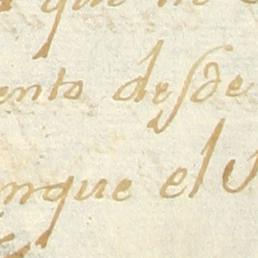 que no
ento desde
nque el